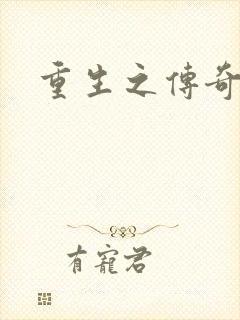 重生之傳奇
有寵君